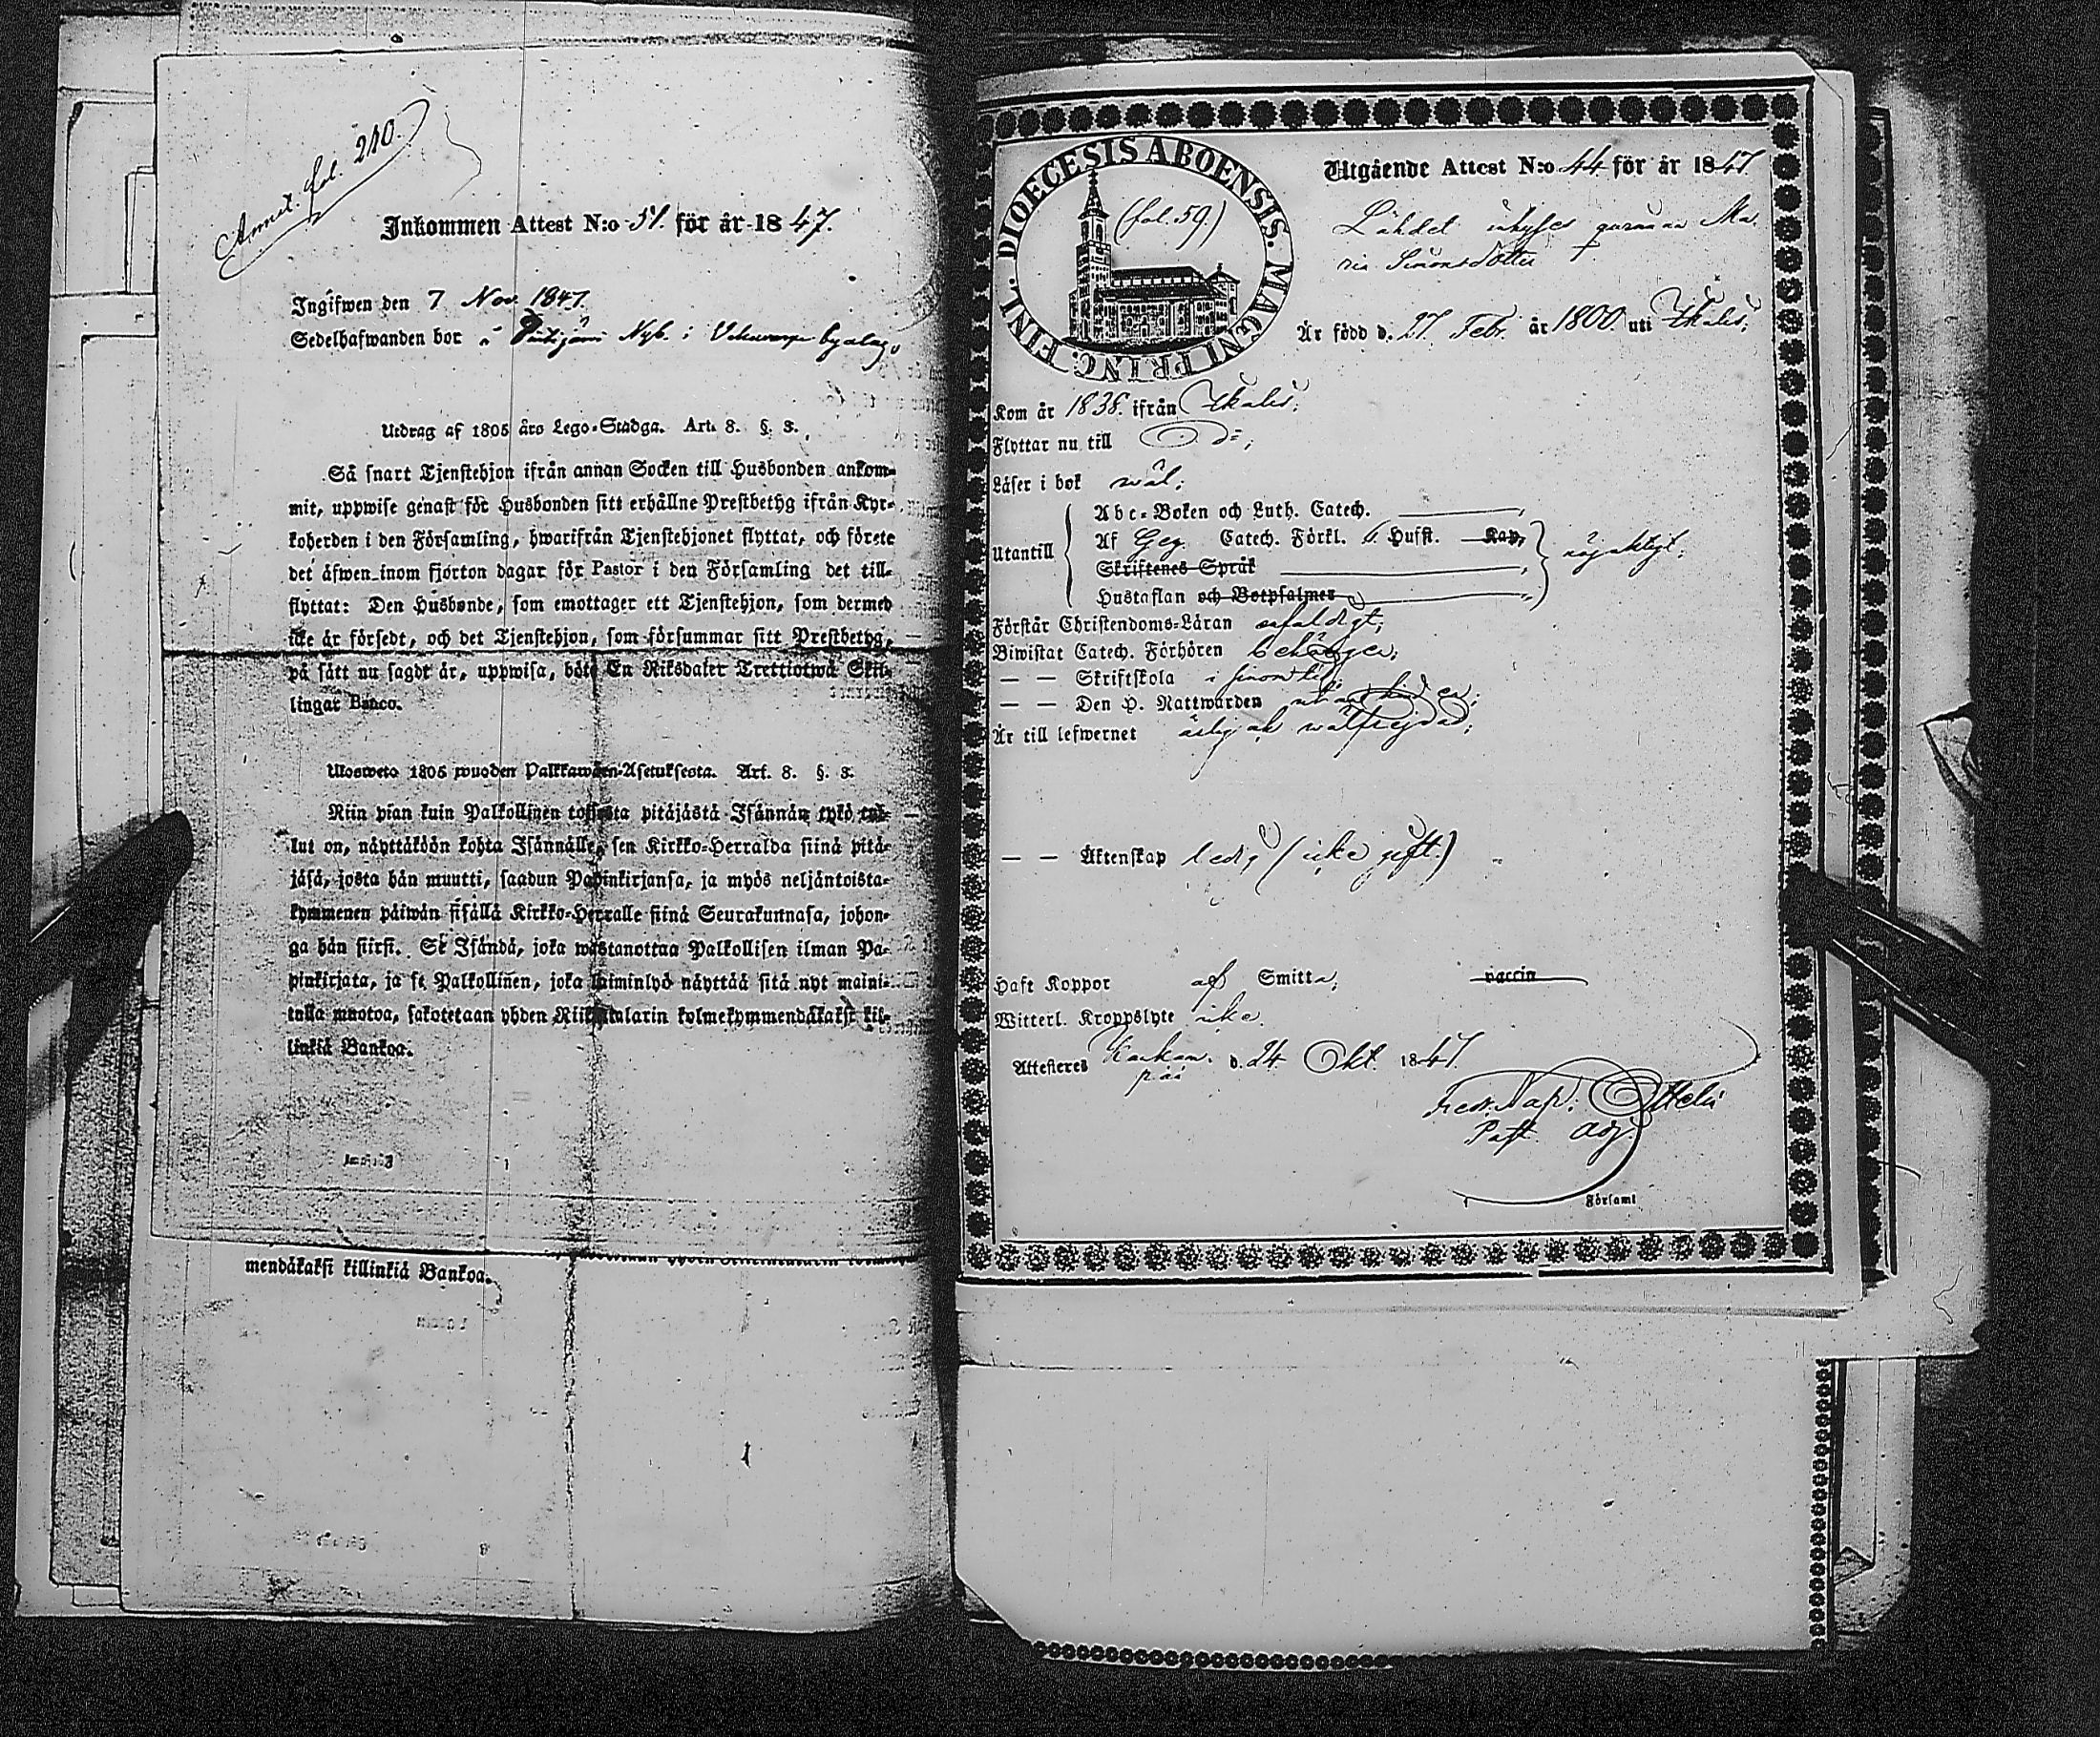 Annot. fol. 210.
Inkommen Attest N:o 51. för år 1847.
Ingifwen den 7 Nov. 1847.
Sedelhafwanden bor å Nyb. i byalag,
Utdrag af 1805 åro Lego-Stadga. Art. 8. §. 3.
Så snart Tjenstehjon ifrån annan Socken till Husbonden ankom-
mit, uppwise genast för Husbonden sitt erhållne Prestbetyg ifrån Kyr-
koherden i den Församling, hwarifrån Tjenstehjonet flyttat, och förete
det äfwen inom fjorton dagar för Pastor i den Församling det till-
flyttat: Den Husbonde, som emottager ett Tjenstehjon, som dermed
icke är försedt, och det Tjenstehjon, som försummar sitt Prestbetyg,
på sätt nu sagdt är, uppwisa, böte En Riksdaler Trettiotwå Skil-
lingar Banco.
Ulosweto 1805 wuoden Palkkawäen-Asetuksesta. Art. 8. §. 3.
Niin pian kuin Palkollinen toisesta pitäjästä Isännän tykö tul-
lut on, näyttäköön kohta Isännälle, sen Kirkko-Herralda siinä pitä-
jäsä, josta hän muutti, saadun Papinkirjansa, ja myös neljäntoista-
kymmenen päiwän sisällä Kirkko-Herralle siinä Seurakunnasa, johon-
ga hän siirsi. Se Isändä, joka wastanottaa Palkollisen ilman Pa-
pinkirjata, ja se Palkollinen, joka laiminlyö näyttää sitä nyt maini-
tulla muotoa, sakotetaan yhden Riikintalarin kolmekymmendäkaksi kil-
linkiä Bankoa.
mendäkaksi killinkiä Bankoa.
DIOECESIS ABOENSIS. MAGNI PRINC. FINL.
(fol. 59.)
Utgående Attest N:o 44 för år 1847.
Lähdet inhyses qvinnan Ma-
ria Simonsdotter
Är född d. 27 Febr. år 1800. uti Ikalis;
Kom år 1838. ifrån Ikalis;
Flyttar nu till D:o;
Läser i bok wäl;
Abc-Boken och Luth. Catech.
Utantill
Af Catech. Förkl. Hufst. Kap.
Skriftenes Språk
Hustaflan och Botpsalmer
Förstår Christendoms-Läran enfaldigt;
Biwistat Catech. Förhören behörigen;
— — Skriftskola
— — Den H. Nattwarden
Är till lefwernet ärlig och wälfrejdad;
— — Äktenskap ledig (icke gift.)
Haft Koppor af Smitta, vaccin
Witterl. Kroppslyte icke.
Attesteras Kankaan-
pää d. 24 Okt. 1847.
Past. Adj.
Församl